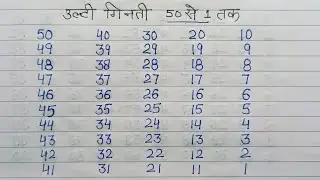 उल्टी गिनती 50 से 1 तक
50 40 30 20 10
49 39 29 19 9
48 38 28 18 8
47 37 27 17 7
46 36 26 16 6
45 35 25 15 5
44 34 24 14 4
43 33 23 13 3
42 32 22 12 2
41 31 21 11 1